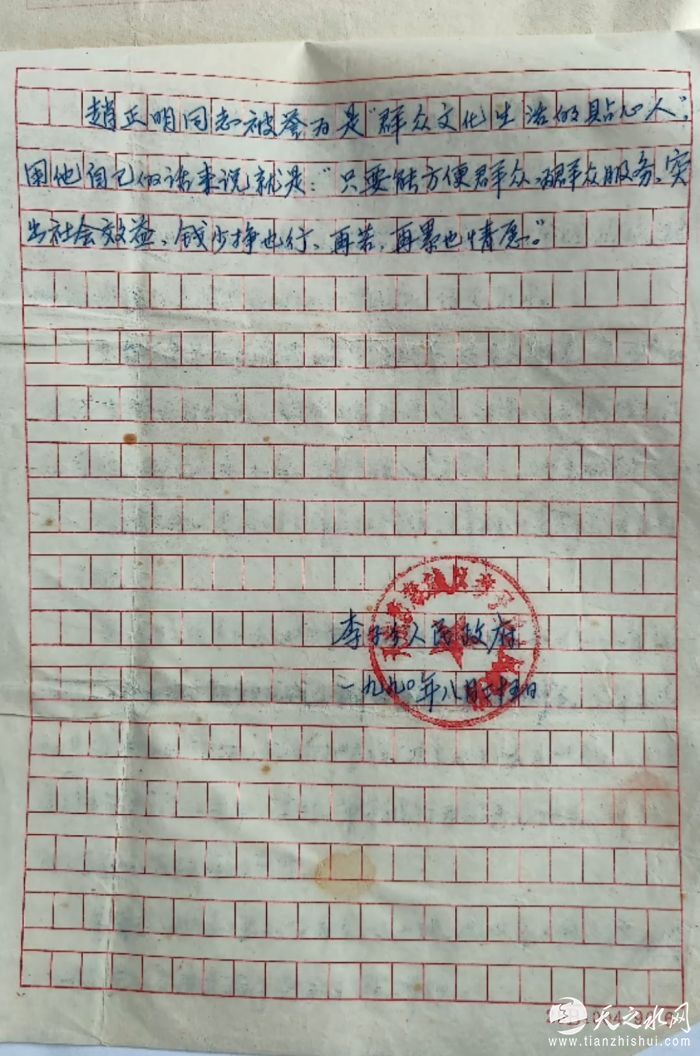 赵正明同志被誉为是“群众文化生活的贴心人”，
用他自己的话来说就是：“只要能方便群众，为群众服务，突
出社会效益，钱少挣也行，再苦，再累也情愿。”
李子乡人民政府
一九九〇年八月二十五日
天之水网
www.tianzhishui.com